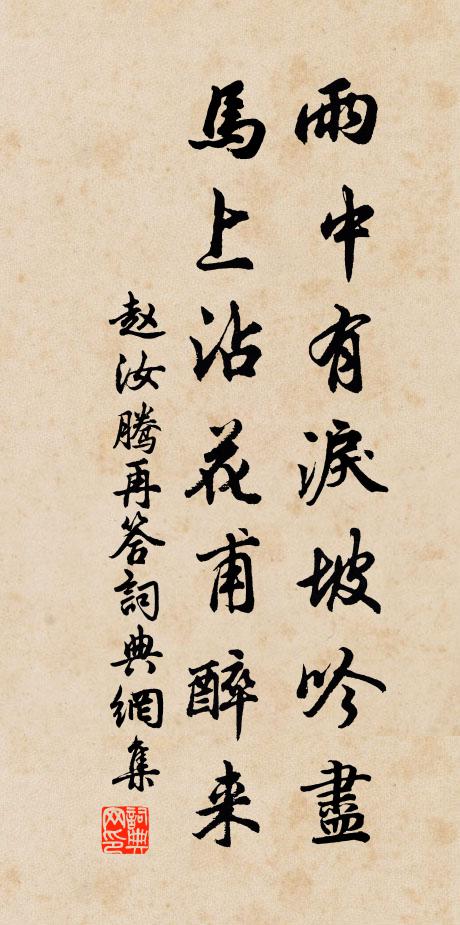 雨中有淚坡吟盡
馬上沾花甫醉来
赵汝騰再答詞典網集
詞典
网印